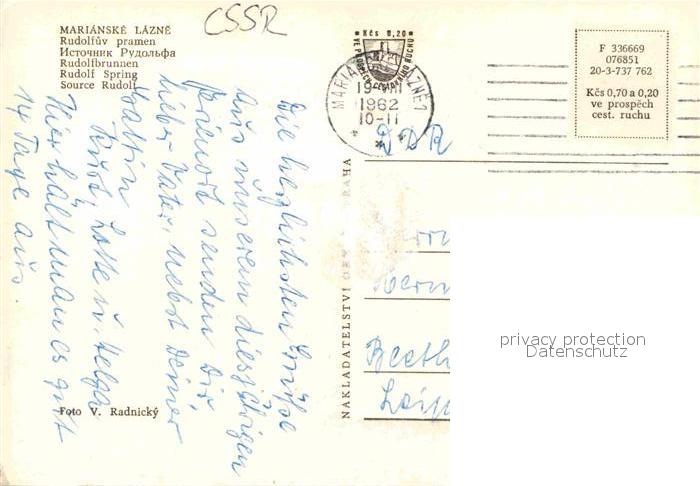 ČSSR
MARIÁNSKÉ LÁZNĚ
Rudolfův pramen
Источник Рудольфа
Rudolfbrunnen
Rudolf Spring
Source Rudolf
Die herzlichsten Grüße
aus unserem diesjährigen
senden Dir
lieber Vater, nebst Deiner
Gattin
Kurt, Lotte u. Helga
Hier hält man es gut
14 Tage aus.
Foto V. Radnický
NAKLADATELSTVÍ PRAHA
Kčs 0,20
VE PROSPĚCH CESTOVNÍHO RUCHU
MARIÁNSKÉ LÁZNĚ 1
1962
10-11
F 336669
076851
20-3-737 762
Kčs 0,70 a 0,20
ve prospěch
cest. ruchu
DDR
Beeth
Leip
privacy protection
Datenschutz